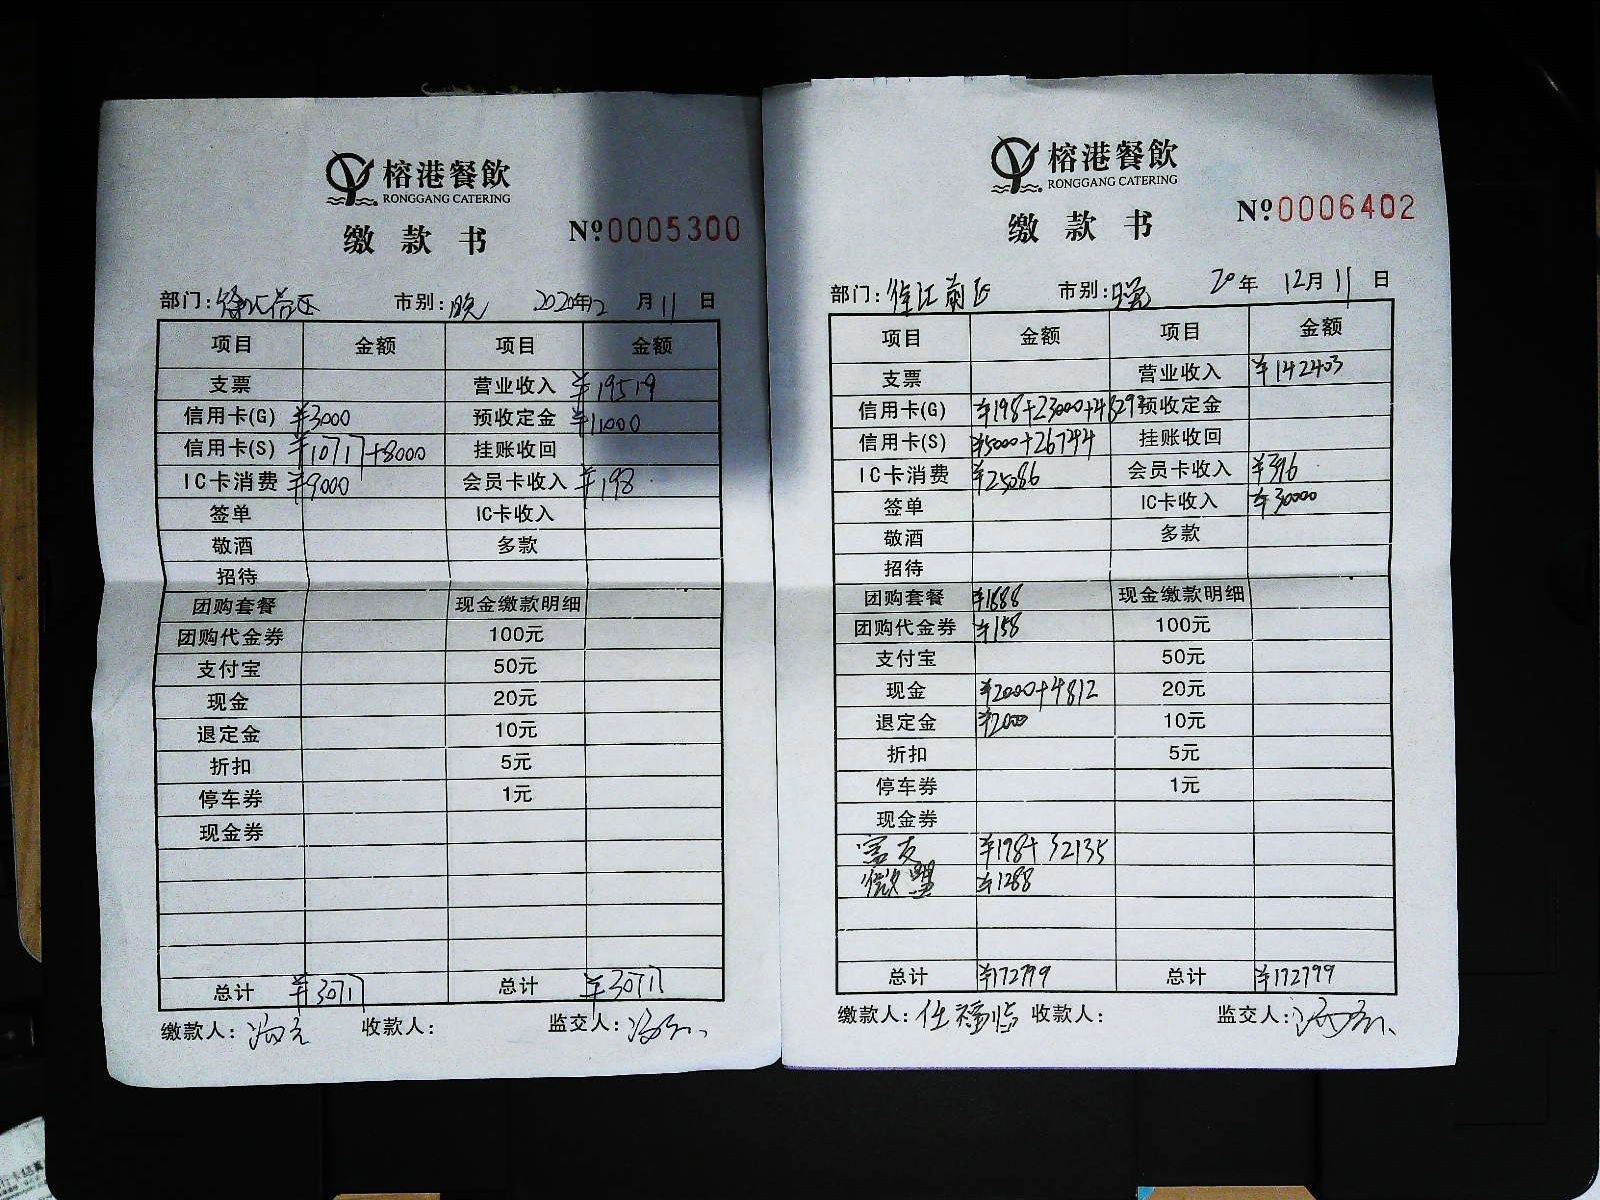 榕港餐飲
RONGGANG CATERING
缴款书
№0005300
部门: 市别:晚 2020年12月11日
项目 金额 项目 金额
支票 营业收入 ¥19519
信用卡(G) ¥3000 预收定金 ¥11000
信用卡(S) ¥10717+8000 挂账收回
IC卡消费 ¥9000 会员卡收入 ¥198
签单 IC卡收入
敬酒 多款
招待
团购套餐 现金缴款明细
团购代金券 100元
支付宝 50元
现金 20元
退定金 10元
折扣 5元
停车券 1元
现金券
总计 ¥30717 总计 ¥30717
缴款人: 收款人: 监交人:
榕港餐飲
RONGGANG CATERING
缴款书
№0006402
部门: 市别: 20年12月11日
项目 金额 项目 金额
支票 营业收入 ¥142403
信用卡(G) ¥198+23000+48292 预收定金
信用卡(S) ¥5000+26744 挂账收回
IC卡消费 ¥25086 会员卡收入 ¥396
签单 IC卡收入 ¥30000
敬酒 多款
招待
团购套餐 ¥1688 现金缴款明细
团购代金券 ¥158 100元
支付宝 50元
现金 ¥2000+4812 20元
退定金 ¥2000 10元
折扣 5元
停车券 1元
现金券
富友 ¥198+32135
微盟 ¥1288
总计 ¥172799 总计 ¥172799
缴款人: 收款人: 监交人: